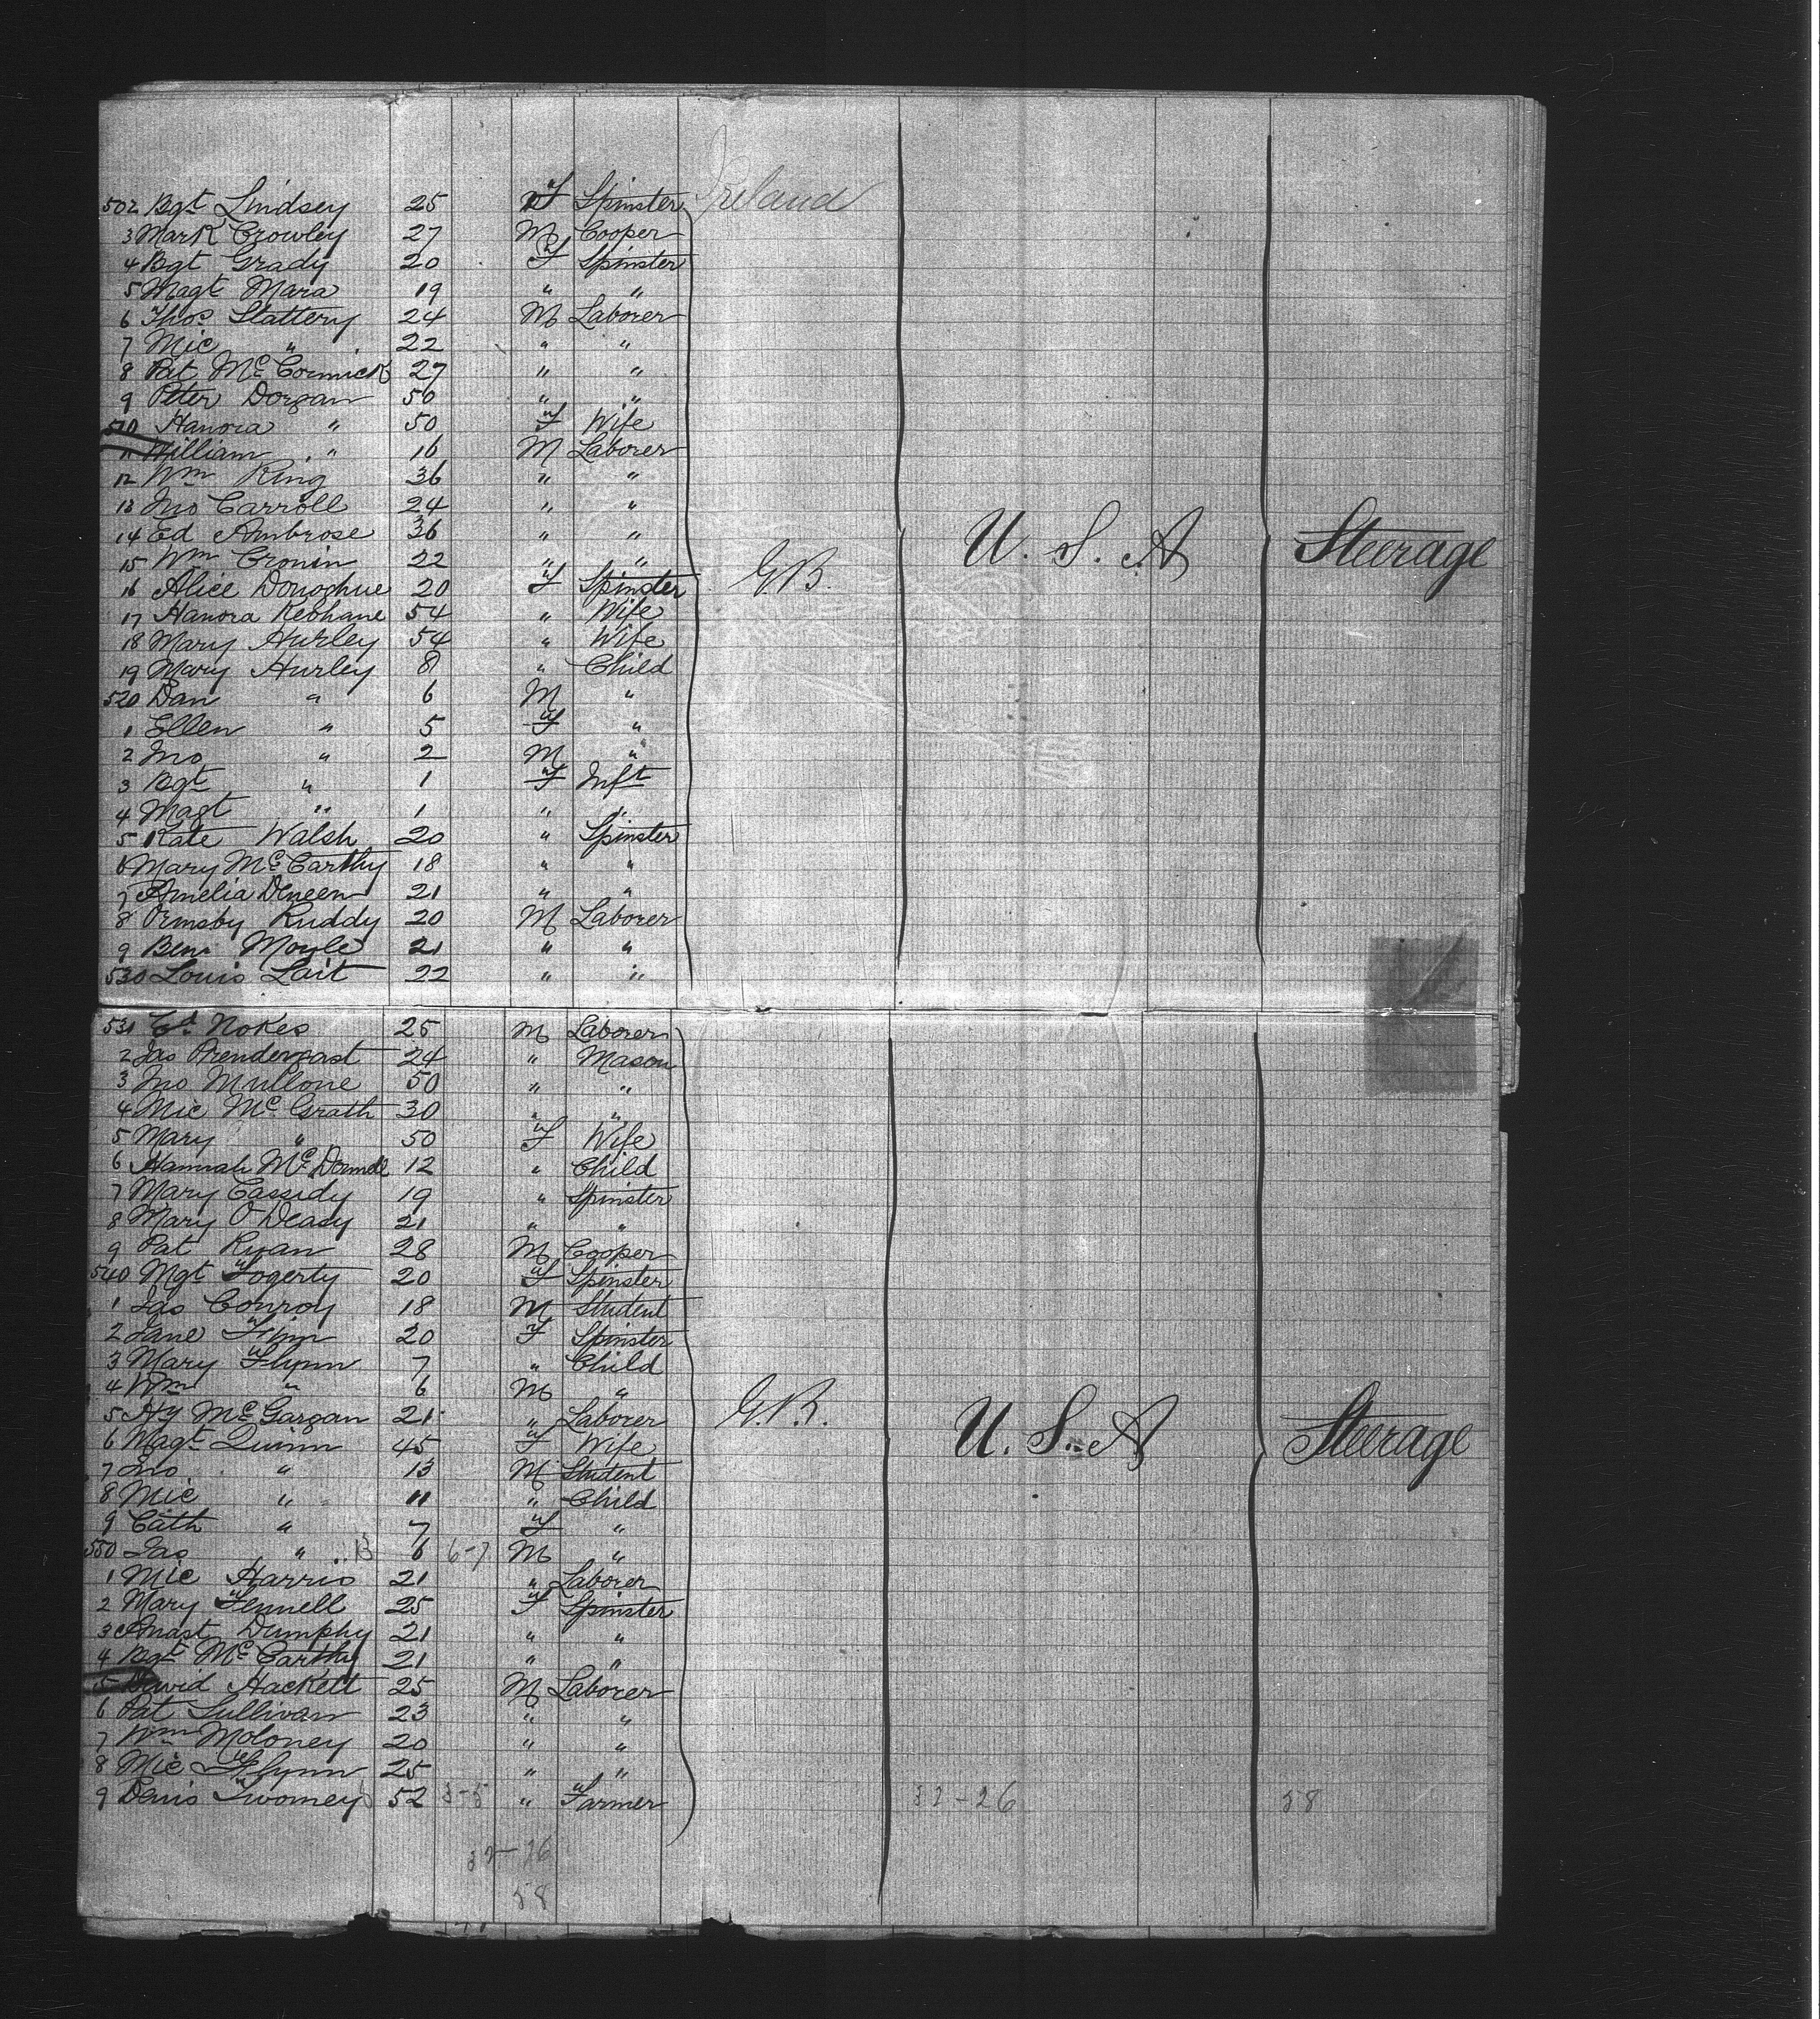 Ireland
502 Bgt Lindsey 25 F Spinster
3 Mark Crowley 27 M Cooper
4 Bgt Grady 20 F Spinster
5 Magt Mara 19 " "
6 Thos Slattery 24 M Laborer
7 Mic " 22 " "
8 Pat McCormick 27 " "
9 Peter Dorgan 50 " "
510 Hanora " 50 F Wife
11 William " 16 M Laborer
12 Wm King 36 " "
13 Jno Carroll 24 " "
14 Ed Ambrose 36 " "
15 Wm Cronin 22 " "
16 Alice Donoghue 20 F Spinster G.B. U.S.A Steerage
17 Hanora Keohane 54 " Wife
18 Mary Hurley 54 " Wife
19 Mary Hurley 8 " Child
520 Dan " 6 M "
1 Ellen " 5 F "
2 Jno " 2 M "
3 Bgt " 1 F Inft
4 Magt " 1 " "
5 Kate Walsh 20 " Spinster
6 Mary McCarthy 18 " "
7 Amelia Dineen 21 " "
8 Ormsby Ruddy 20 M Laborer
9 Benj Moyle 21 " "
530 Louis Lait 22 " "
531 Ed Nokes 25 M Laborer
2 Jas Prendergast 24 " Mason
3 Jno Mullone 50 " "
4 Mic McGrath 30 " "
5 Mary " 50 F Wife
6 Hannah McDonnell 12 " Child
7 Mary Cassidy 19 " Spinster
8 Mary O'Deasy 21 " "
9 Pat Ryan 28 M Cooper
540 Mgt Fogerty 20 F Spinster
1 Jas Conroy 18 M Student
2 Jane Finn 20 F Spinster
3 Mary Flynn 7 " Child
4 Wm " 6 M "
5 Hy McGargan 21 " Laborer G.B. U.S.A Steerage
6 Magt Quinn 45 F Wife
7 Jno " 13 M Student
8 Mic " 11 " Child
9 Cath " 7 F "
550 Jas " 13 6 6-7 M "
1 Mic Harris 21 " Laborer
2 Mary Fennell 25 F Spinster
3 Anast Dumphy 21 " "
4 Bgt McCarthy 21 " "
5 David Hackett 25 M Laborer
6 Pat Sullivan 23 " "
7 Wm Moloney 20 " "
8 Mic Flynn 25 " "
9 Denis Twomey 52 3-5 " Farmer 32-26 58
32-26
58